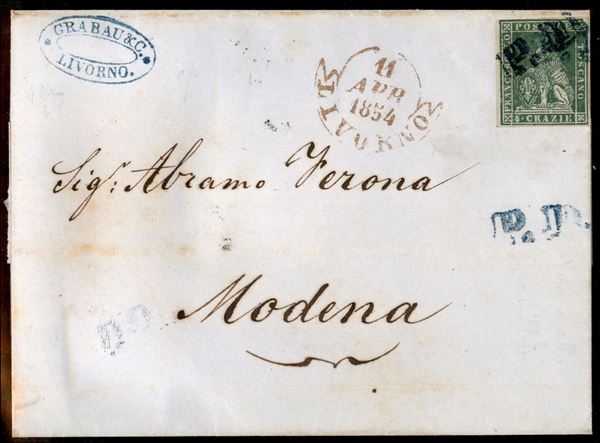 * GRABAU & C. *
LIVORNO.
LIVORNO
11
APR
1854
FRANCOBOLLO
POSTALE
TOSCANO
4. CRAZIE
P. D.
Sigr. Abramo Verona
P. D.
Modena